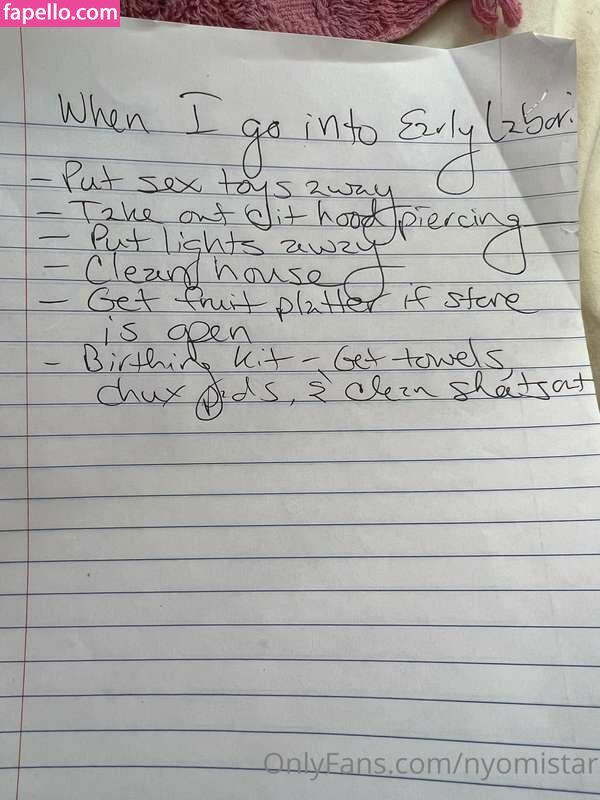 fapello.com
When I go into Early Labor:
- Put sex toys away
- Take out clit hood piercing
- Put lights away
- Clean house
- Get fruit platter if store
is open
- Birthing kit - Get towels,
chux pads, & clean sheets out
OnlyFans.com/nyomistar